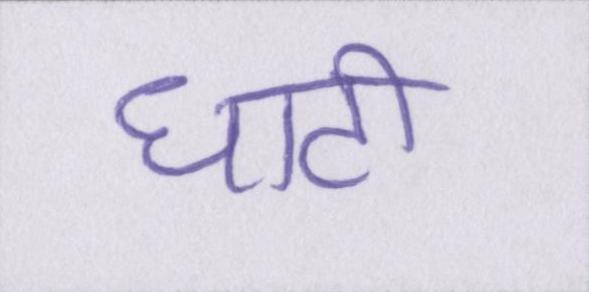 घाटी